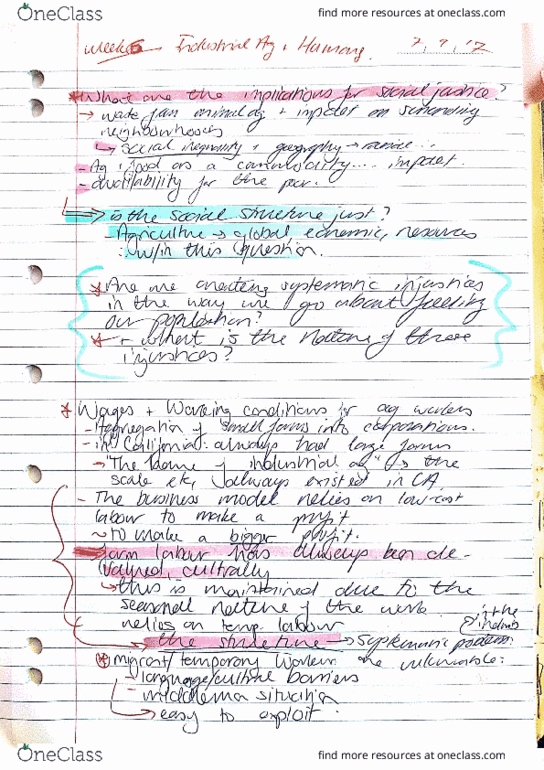 OneClass
find more resources at oneclass.com
week 6 Industrial Ag + Housing 7, 9, '17
* What are the implications for social justice?
→ waste from animal ag + impact on surrounding
neighbourhoods
↳ social inequality + geography →
- Ag + food as a commodity.... impact.
- availability for the poor.
⇒ is the social structure just?
- Agriculture → global economic, resources
w/in this question.
* Are we creating systematic injustices
in the way we go about feeding
our population?
* + what is the nature of those
injustices?
* Wages + Working conditions for ag workers
- Aggregation of small farms into corporations.
- in California: always had large farms
→ "The home of industrial ag" → the
scale etc, always existed in CA.
- The business model relies on low-cost
labour to make a profit
~ to make a bigger profit.
farm labour has always been de-
valued, culturally
↳ this is maintained due to the
seasonal nature of the work.
relies on temp. labour
the structure → systematic problem in the
* migrant/temporary workers are vulnerable:
language/culture barriers
- middleman situation
→ easy to exploit.
OneClass
find more resources at oneclass.com